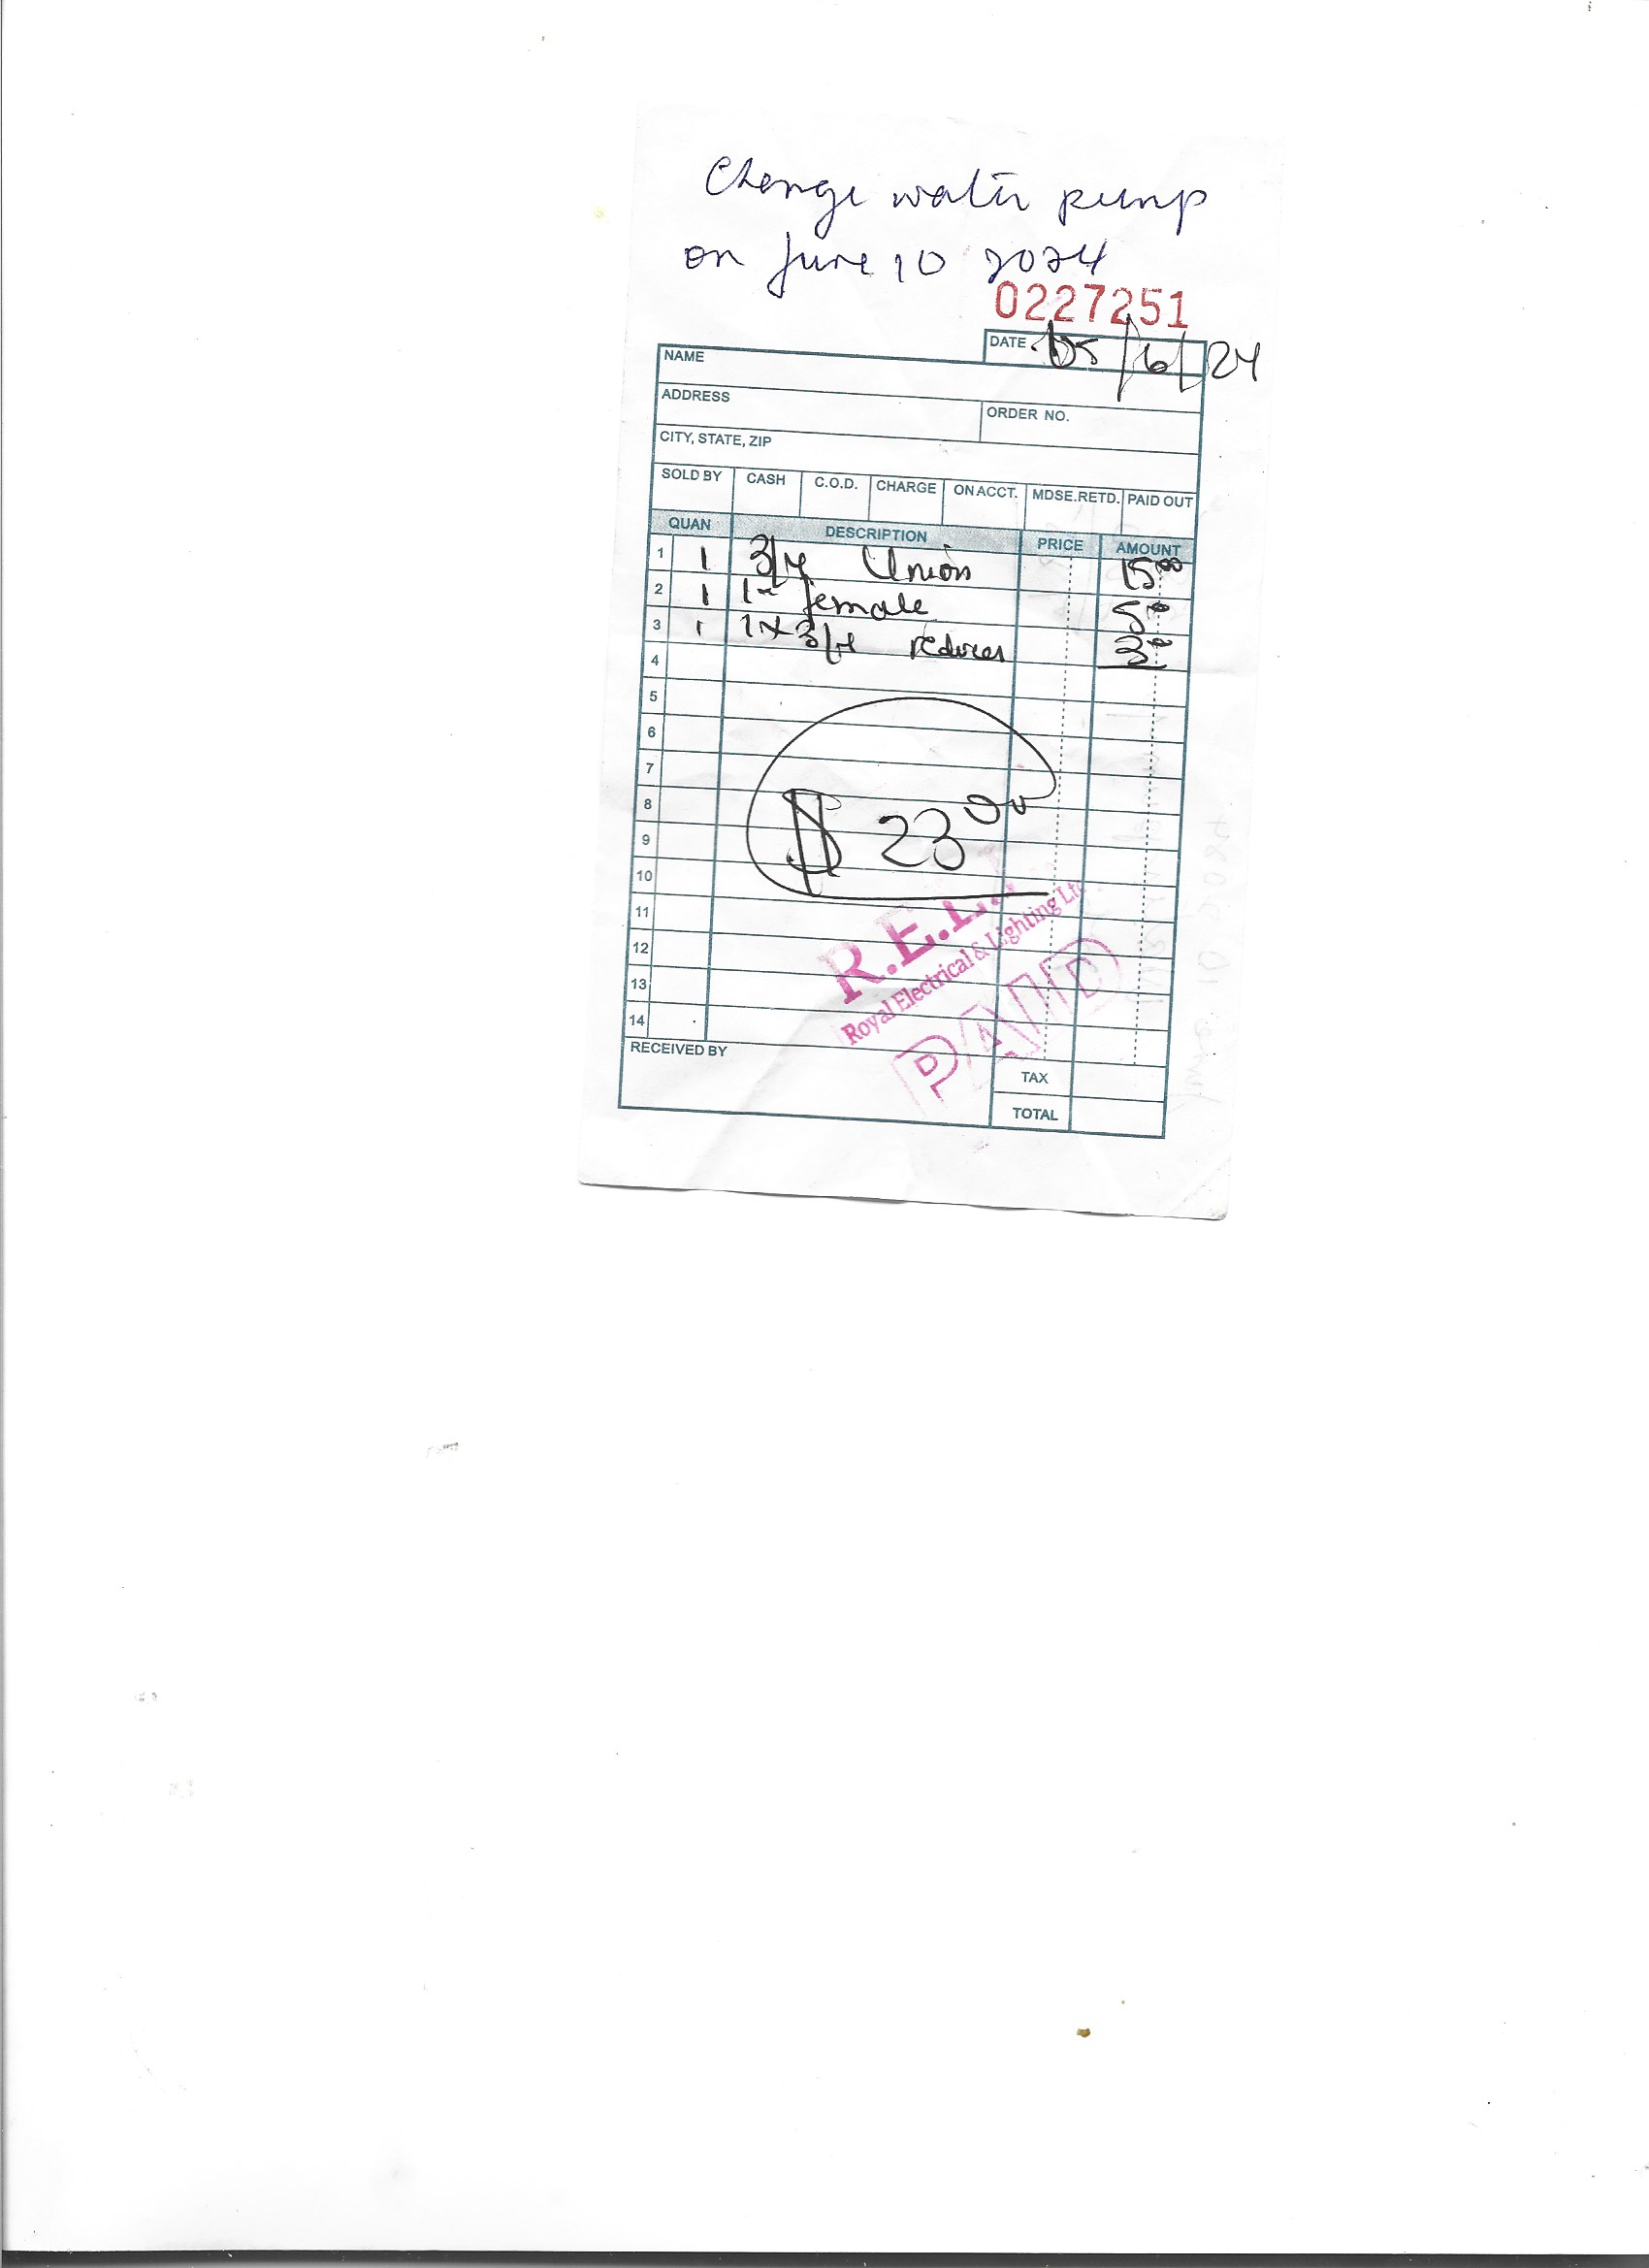 Change water pump
on June 10 2024
0227251
DATE 05/6/24
NAME
ADDRESS
ORDER NO.
CITY, STATE, ZIP
SOLD BY CASH C.O.D. CHARGE ON ACCT. MDSE.RETD. PAID OUT
QUAN DESCRIPTION PRICE AMOUNT
1 1 3/4 Union 15.00
2 1 1" female 5.00
3 1 1x3/4 reducer 3.00
4
5
6
7
8 $ 23.00
9
10
11
12
13
14
R.E.L.
Royal Electrical & Lighting Lt
PAID
RECEIVED BY
TAX
TOTAL